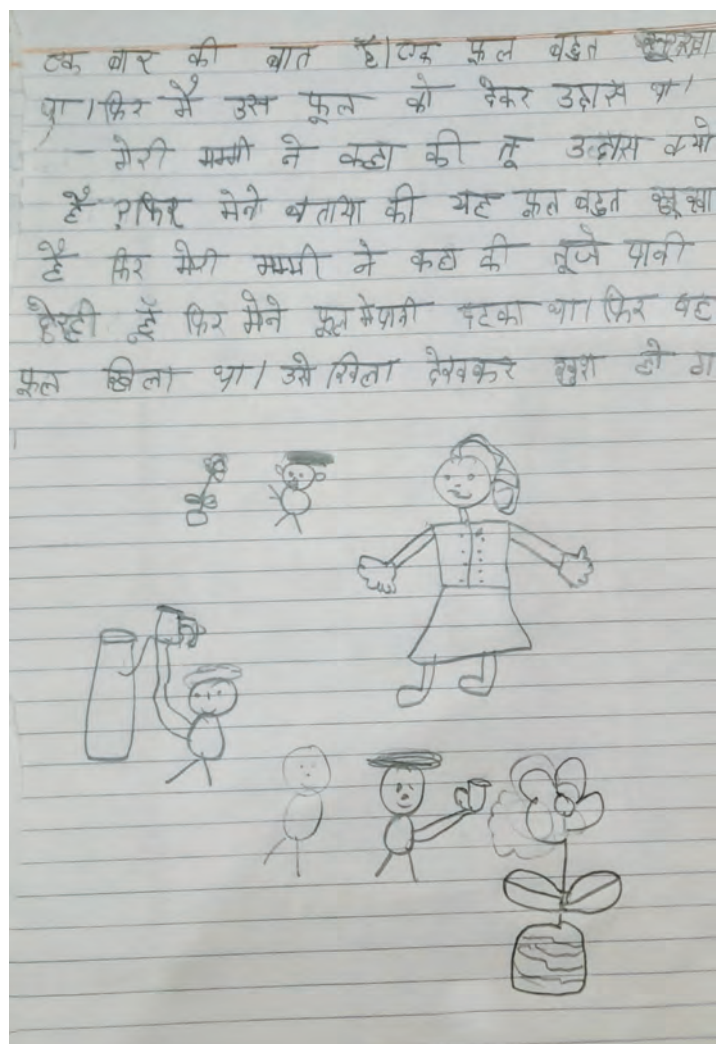 एक बार की बात है। एक फूल बहुत
था। फिर मैं उस फूल को देकर उदास था।
मेरी मम्मी ने कहा की तू उदास क्यो
हैं ? फिर मेने बताया की यह फूल बहुत सूखा
हैं फिर मेरी मम्मी ने कहा की तूजे पानी
हूँ फिर मेने फूल मे पानी पटका था। फिर वह
फूल खिला था। उसे खिला देखकर खुश हो ग